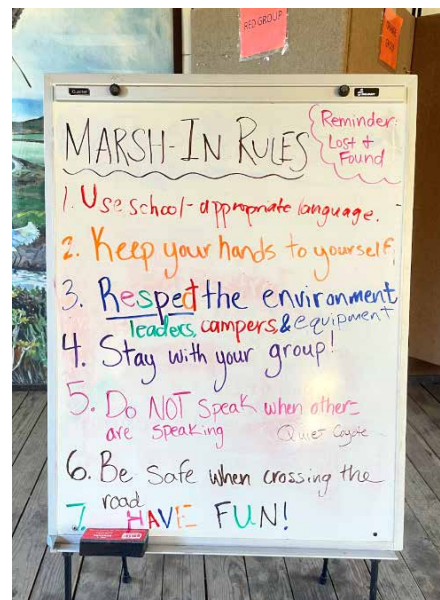 RED GROUP
MARSH-IN RULES
Reminder:
Lost &
Found
1. Use school-appropriate language.
2. Keep your hands to yourself.
3. Respect the environment
leaders, campers, & equipment
4. Stay with your group!
5. Do NOT speak when others
are speaking
Quiet Coyote
6. Be safe when crossing the
road
7. HAVE FUN!